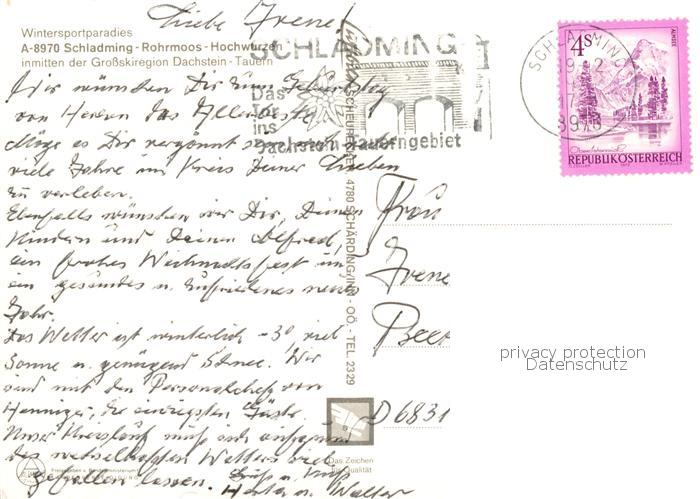 Liebe Irene!
Wintersportparadies
A-8970 Schladming - Rohrmoos - Hochwurzen
inmitten der Großskiregion Dachstein - Tauern
Wir wünschen Dir zum Geburtstag
von Herzen das Allerbeste
Möge es Dir vergönnt sein noch
viele Jahre im Kreis Deiner Lieben
zu verleben.
Ebenfalls wünschen wir Dir, Deinen
Kindern und Deinem Alfred,
ein frohes Weihnachtsfest und
ein gesundes u. zufriedenes neues
Jahr.
Das Wetter ist winterlich -3° viel
Sonne u. genügend Schnee. Wir
sind mit den Personalchef von
Henninger, die einzigsten Gäste.
Unser Kreislauf muß sich
des wechselhaften Wetters viel
gefallen lassen. Gruß u. Kuß
Herta u. Walter
SCHLADMING
Das
Tor
ins
Dachstein-Tauerngebiet
SCHLADMING
8970
4S
ALMSEE
REPUBLIK ÖSTERREICH
4780 SCHÄRDING/INN - OÖ. - TEL. 2329
Frau
Irene
Beer
D 6831
Das Zeichen
für Qualität
privacy protection
Datenschutz